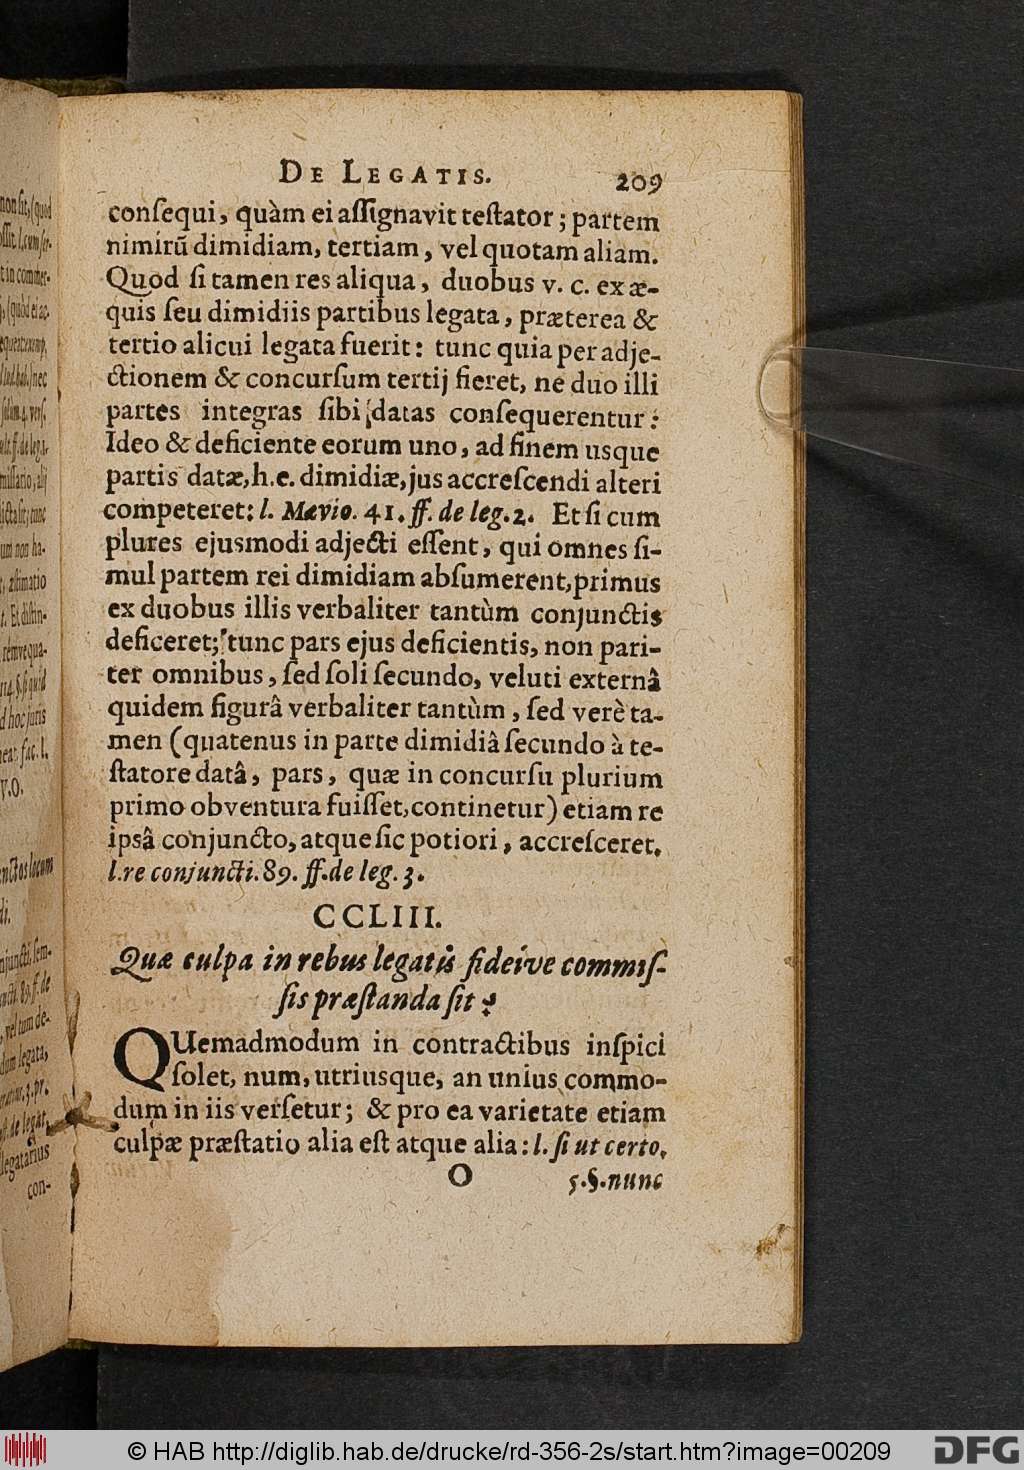 DE LEGATIS. 209
conſequi, quàm ei aſſignavit teſtator; partem
nimirũ dimidiam, tertiam, vel quotam aliam.
Quod ſi tamen res aliqua, duobus v. c. ex æ-
quis ſeu dimidiis partibus legata, præterea &
tertio alicui legata fuerit: tunc quia per adje-
ctionem & concurſum tertij fieret, ne duo illi
partes integras ſibi datas conſequerentur:
Ideo & deficiente eorum uno, ad finem usque
partis datæ, h.e. dimidiæ, jus accreſcendi alteri
competeret: l. Mævio. 41. ff. de leg. 2. Et ſi cum
plures ejusmodi adjecti eſſent, qui omnes ſi-
mul partem rei dimidiam abſumerent, primus
ex duobus illis verbaliter tantùm conjunctis
deficeret; tunc pars ejus deficientis, non pari-
ter omnibus, ſed ſoli ſecundo, veluti externâ
quidem figurâ verbaliter tantùm, ſed verè ta-
men (quatenus in parte dimidiâ ſecundo à te-
ſtatore datâ, pars, quæ in concurſu plurium
primo obventura fuiſſet, continetur) etiam re
ipsâ conjuncto, atque ſic potiori, accreſceret.
l. re conjuncti. 89. ff. de leg. 3.
CCLIII.
Quæ culpa in rebus legatis fideive commiſ-
ſis præſtanda ſit?
QUemadmodum in contractibus inſpici
ſolet, num, utriusque, an unius commo-
dum in iis verſetur; & pro ea varietate etiam
culpæ præſtatio alia eſt atque alia: l. ſi ut certo.
O 5. §. nunc
© HAB http://diglib.hab.de/drucke/rd-356-2s/start.htm?image=00209
DFG